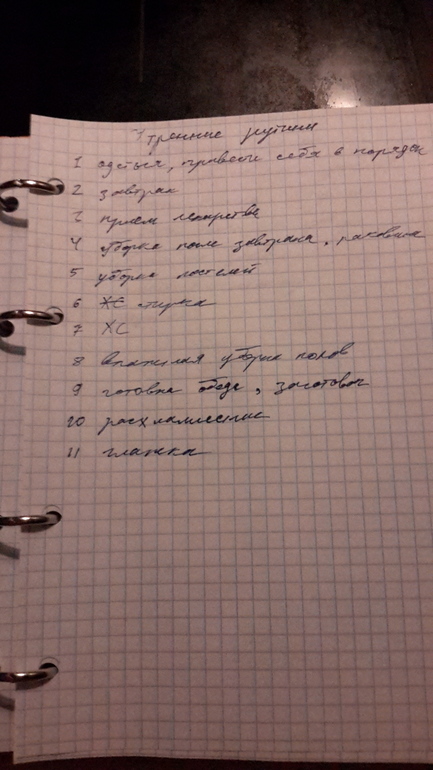 Утренние рутины
1 одеться, привести себя в порядок
2 завтрак
3 прием лекарства
4 уборка после завтрака, раковина
5 уборка постелей
6 стирка
7 ХС
8 влажная уборка полов
9 готовка обеда, заготовок
10 расхламление
11 глажка